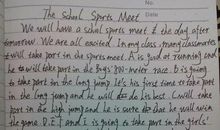 The School Sports Meet
No.
Date
We will have a school sports meet the day after
tomorrow. We are all excited. In my class, many classmates
will take part in the sports meet. A is good at running and
he will take part in the boys' -meter race. B is going
to take part in the long jump. It's his first time to take part
in the long jump and he will do his best. C will take
part in the high jump and he is sure that he will win
the game. D, E, F and I is going to take part in the girls'